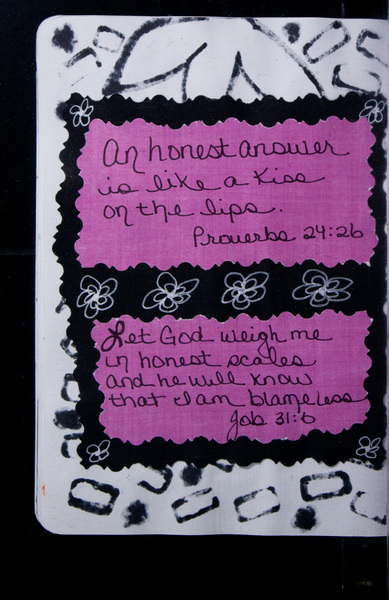 An honest answer
is like a kiss
on the lips.
Proverbs 24:26
Let God weigh me
in honest scales
and he will know
that I am blameless
Job 31:6